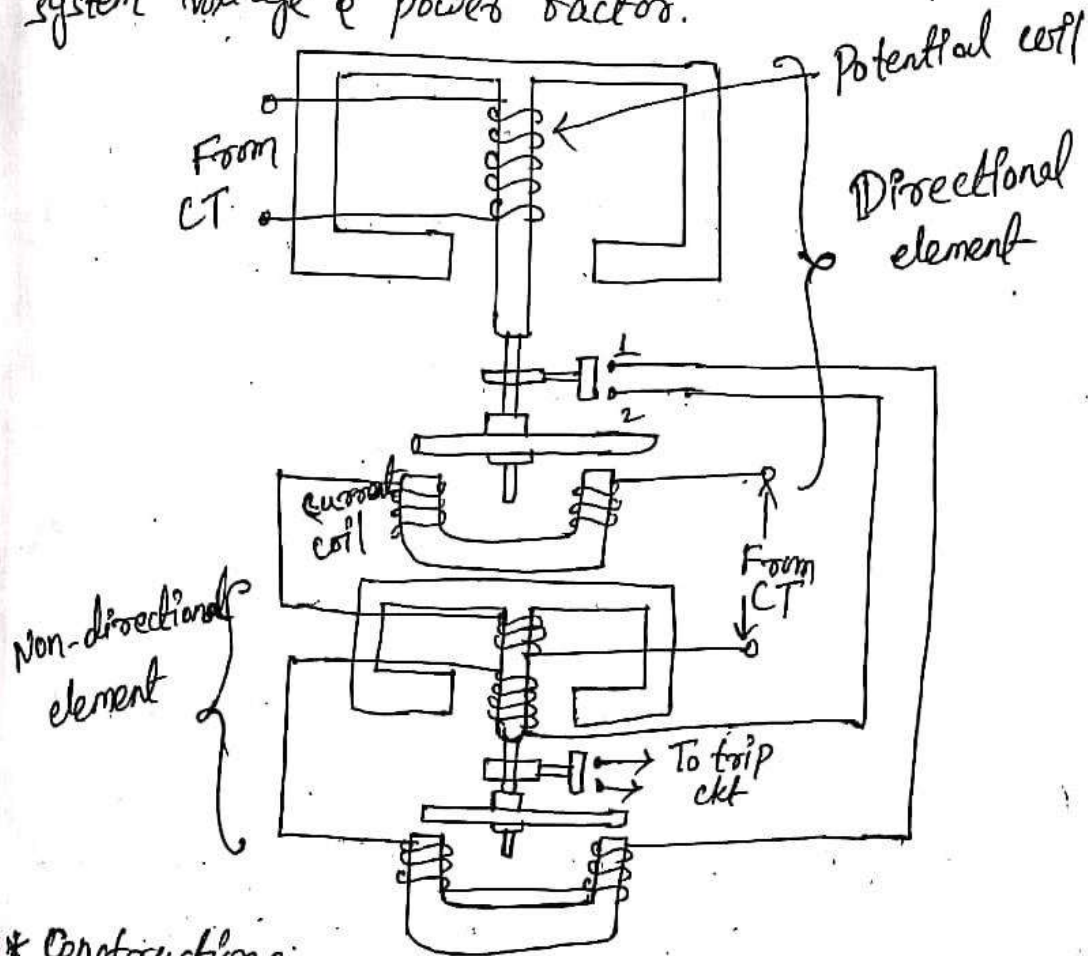 system voltage & power factor.
Potential coil
From
CT.
Directional
element
1
2
current
coil
From
CT
Non-directional
element
To trip
ckt
* Construction: